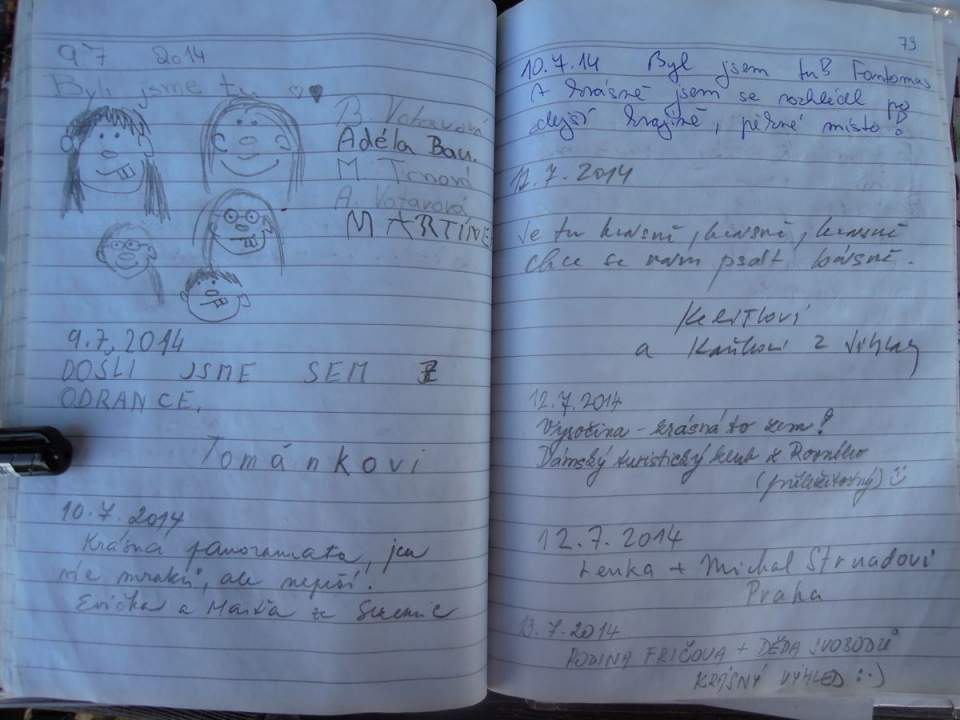 9 7 2014
Byli jsme tu
B. Votavová
Adéla Bau.
M. Trnová
A. Votavová
MARTINE
9.7.2014
DOŠLI JSME SEM Z
ODRANCE.
Tománkovi
10.7.2014
Krásná panoramata, jen
více mraků, ale neprší.
Evička a Maria ze
79
10.7.14 Byl jsem tu Fantomas
A krásně jsem se rozhlédl po
zdejší krajině, pěkné místo!
12.7.2014
Je tu krásně, krásně, krásně
chce se nám psát básně.
a Kaňkovi z Jihlavy
12.7.2014
Vysočina - krásná to zem!
Dámský turistický klub z Rovného
(příležitostný)
12.7.2014
Lenka + Michal Strnadovi
Praha
13.7.2014
RODINA FRIČOVA + DĚDA SVOBODŮ
KRÁSNÝ VÝHLED :-)